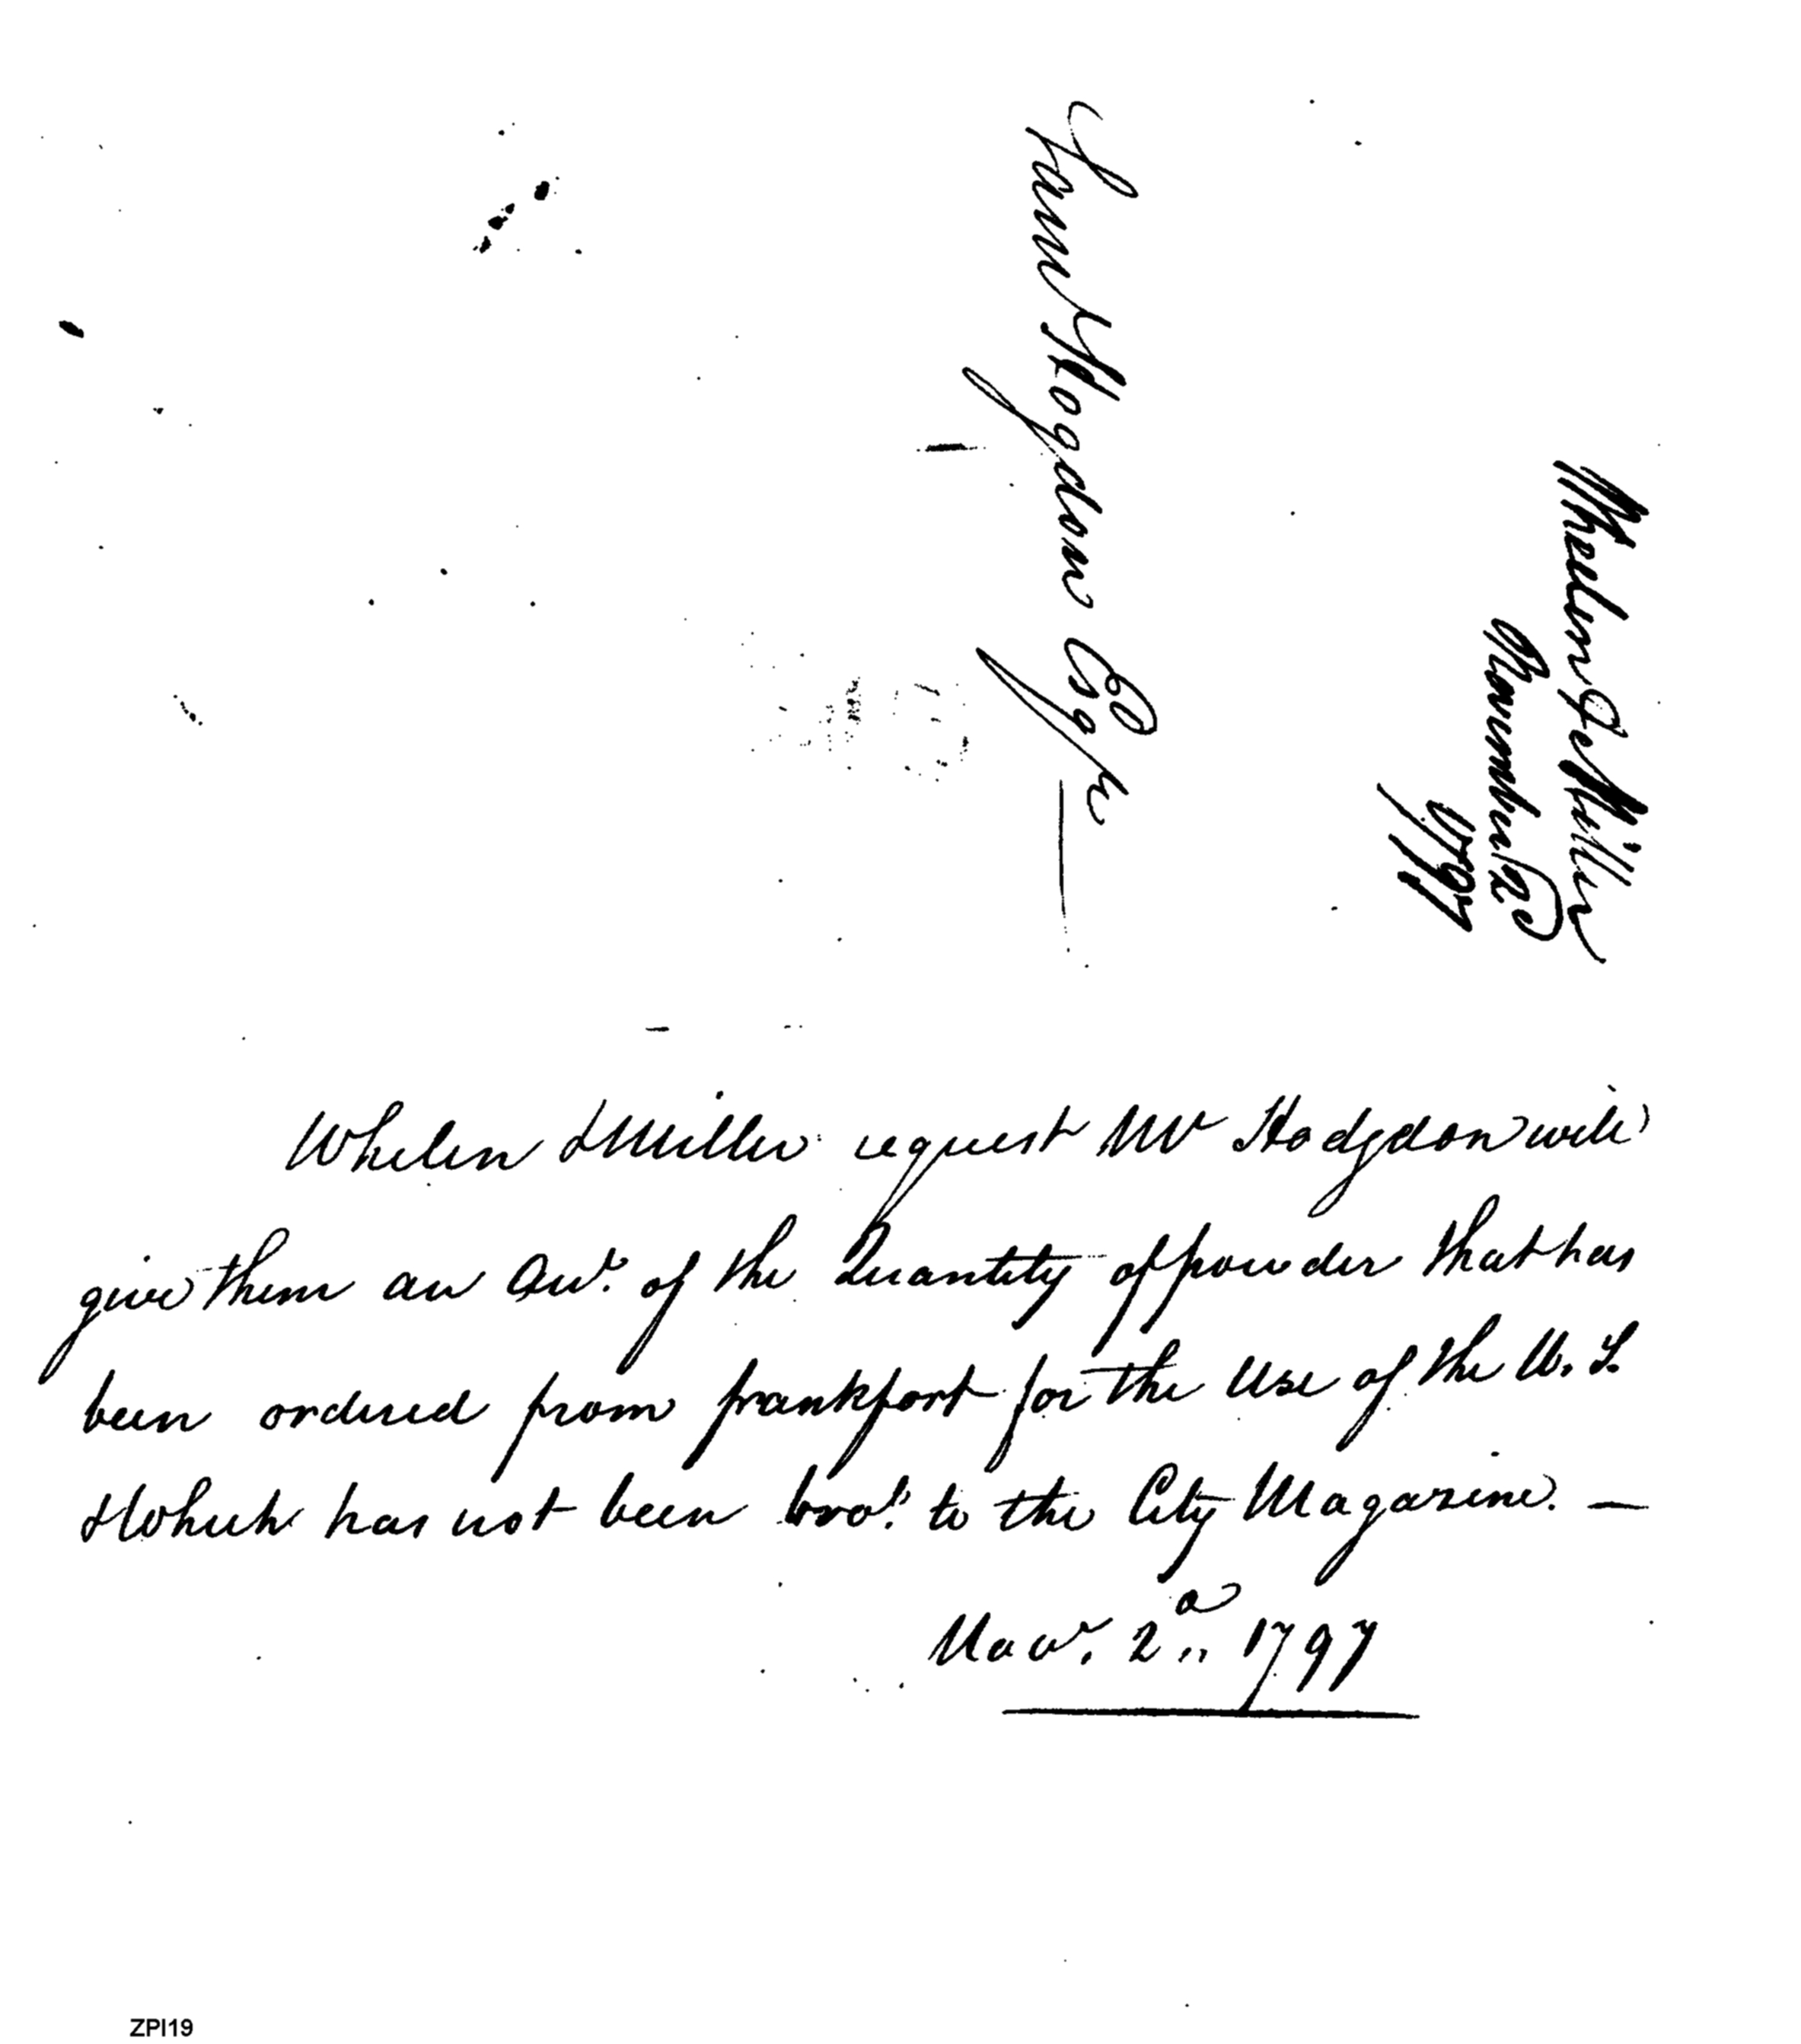 Saml Hogdon Esqr
Whelen & Miller
November 2d
1797
Whelen & Miller request Mr Hodgdon will
give them an Acct. of the Quantity of powder that has
been ordered from frankfort for the Use of the U. S.
& Which has not been brot. to the City Magazine. —
Novr. 2d 1797
ZPI19